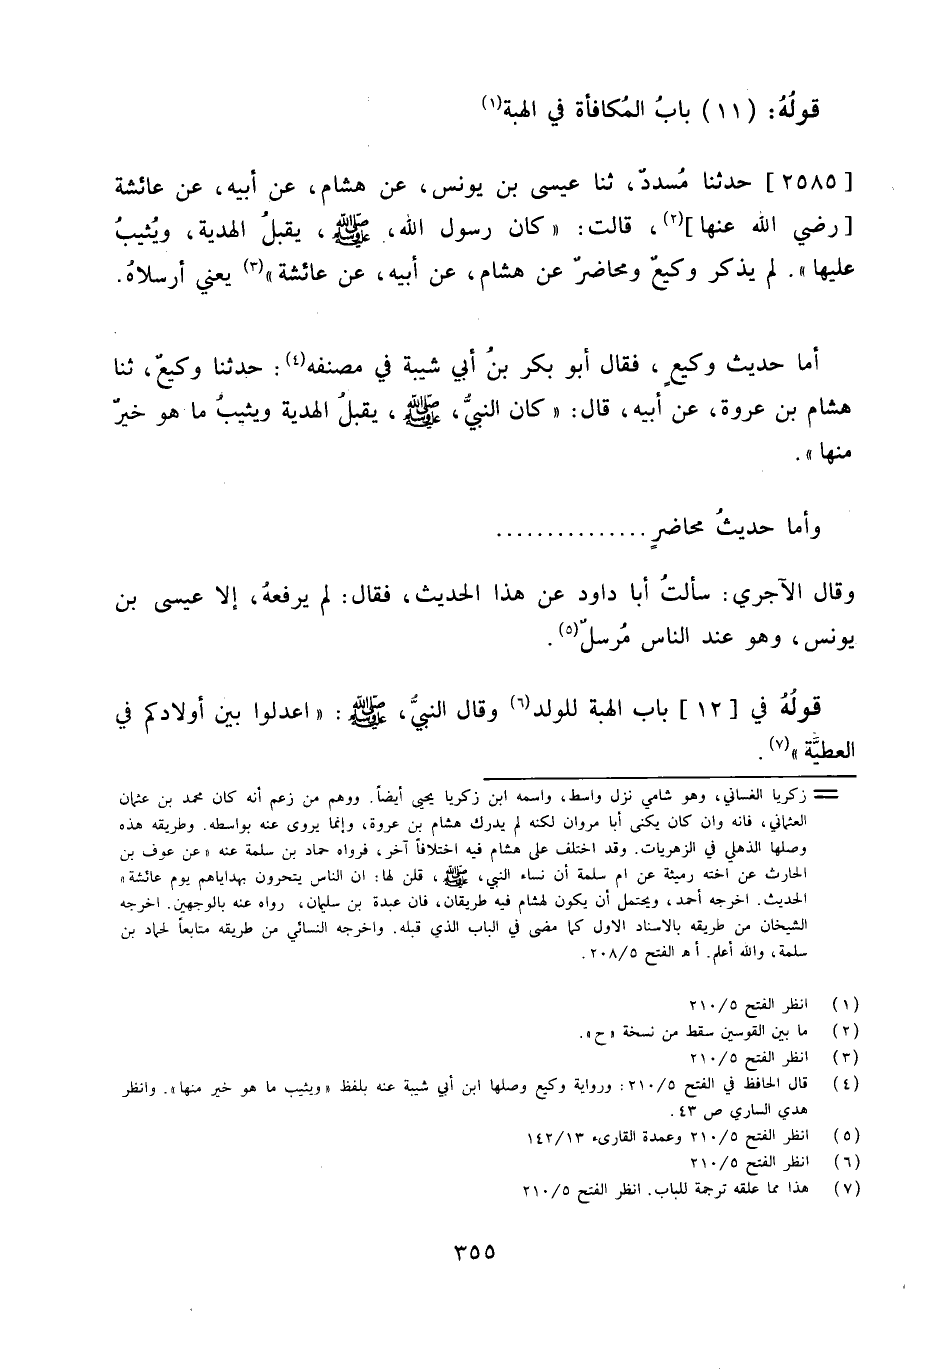 قولُهُ: (١١) بابُ المُكافأة في الهبة(١)
[٢٥٨٥] حدثنا مُسددّ، ثنا عيسى بن يونس، عن هشام، عن أبيه، عن عائشة
[رضي الله عنها](٢)، قالت: «كان رسول الله، ﷺ، يقبلُ الهدية، ويُثيبُ
عليها». لم يذكر وكيعٌ ومحاضرٌ عن هشام، عن أبيه، عن عائشة»(٣) يعني أرسلاهُ.
أما حديث وكيعٍ، فقال أبو بكر بنُ أبي شيبة في مصنفه(٤): حدثنا وكيعٌ، ثنا
هشام بن عروة، عن أبيه، قال: «كان النبيُّ، ﷺ، يقبلُ الهدية ويثيبُ ما هو خيرٌ
منها».
وأما حديثُ محاضرٍ ...............
وقال الآجري: سألتُ أبا داود عن هذا الحديث، فقال: لم يرفعهُ، إلا عيسى بن
يونس، وهو عند الناس مُرسلٌ(٥).
قولُهُ في [١٢] باب الهبة للولد(٦) وقال النبيُّ، ﷺ: «اعدلوا بين أولادكم في
العطيَّة»(٧).
= زكريا الغساني، وهو شامي نزل واسط، واسمه ابن زكريا يحيى أيضاً. ووهم من زعم أنه كان محمد بن عثمان
العثماني، فانه وان كان يكنى أبا مروان لكنه لم يدرك هشام بن عروة، وإنما يروى عنه بواسطه. وطريقه هذه
وصلها الذهلي في الزهريات. وقد اختلف على هشام فيه اختلافاً آخر، فرواه حماد بن سلمة عنه «عن عوف بن
الحارث عن اخته رميثة عن ام سلمة أن نساء النبي، ﷺ، قلن لها: ان الناس يتحرون بهداياهم يوم عائشة»
الحديث. اخرجه أحمد، ويحتمل أن يكون لهشام فيه طريقان، فان عبدة بن سليمان، رواه عنه بالوجهين. اخرجه
الشيخان من طريقه بالاسناد الاول كما مضى في الباب الذي قبله. واخرجه النسائي من طريقه متابعاً لحماد بن
سلمة، والله أعلم. أ هـ الفتح ٢٠٨/٥.
(١) انظر الفتح ٢١٠/٥
(٢) ما بين القوسين سقط من نسخة «ح».
(٣) انظر الفتح ٢١٠/٥
(٤) قال الحافظ في الفتح ٢١٠/٥: ورواية وكيع وصلها ابن أبي شيبة عنه بلفظ «ويثيب ما هو خير منها». وانظر
هدي الساري ص ٤٣.
(٥) انظر الفتح ٢١٠/٥ وعمدة القارىء ١٤٢/١٣
(٦) انظر الفتح ٢١٠/٥
(٧) هذا مما علقه ترجمة للباب. انظر الفتح ٢١٠/٥
٣٥٥